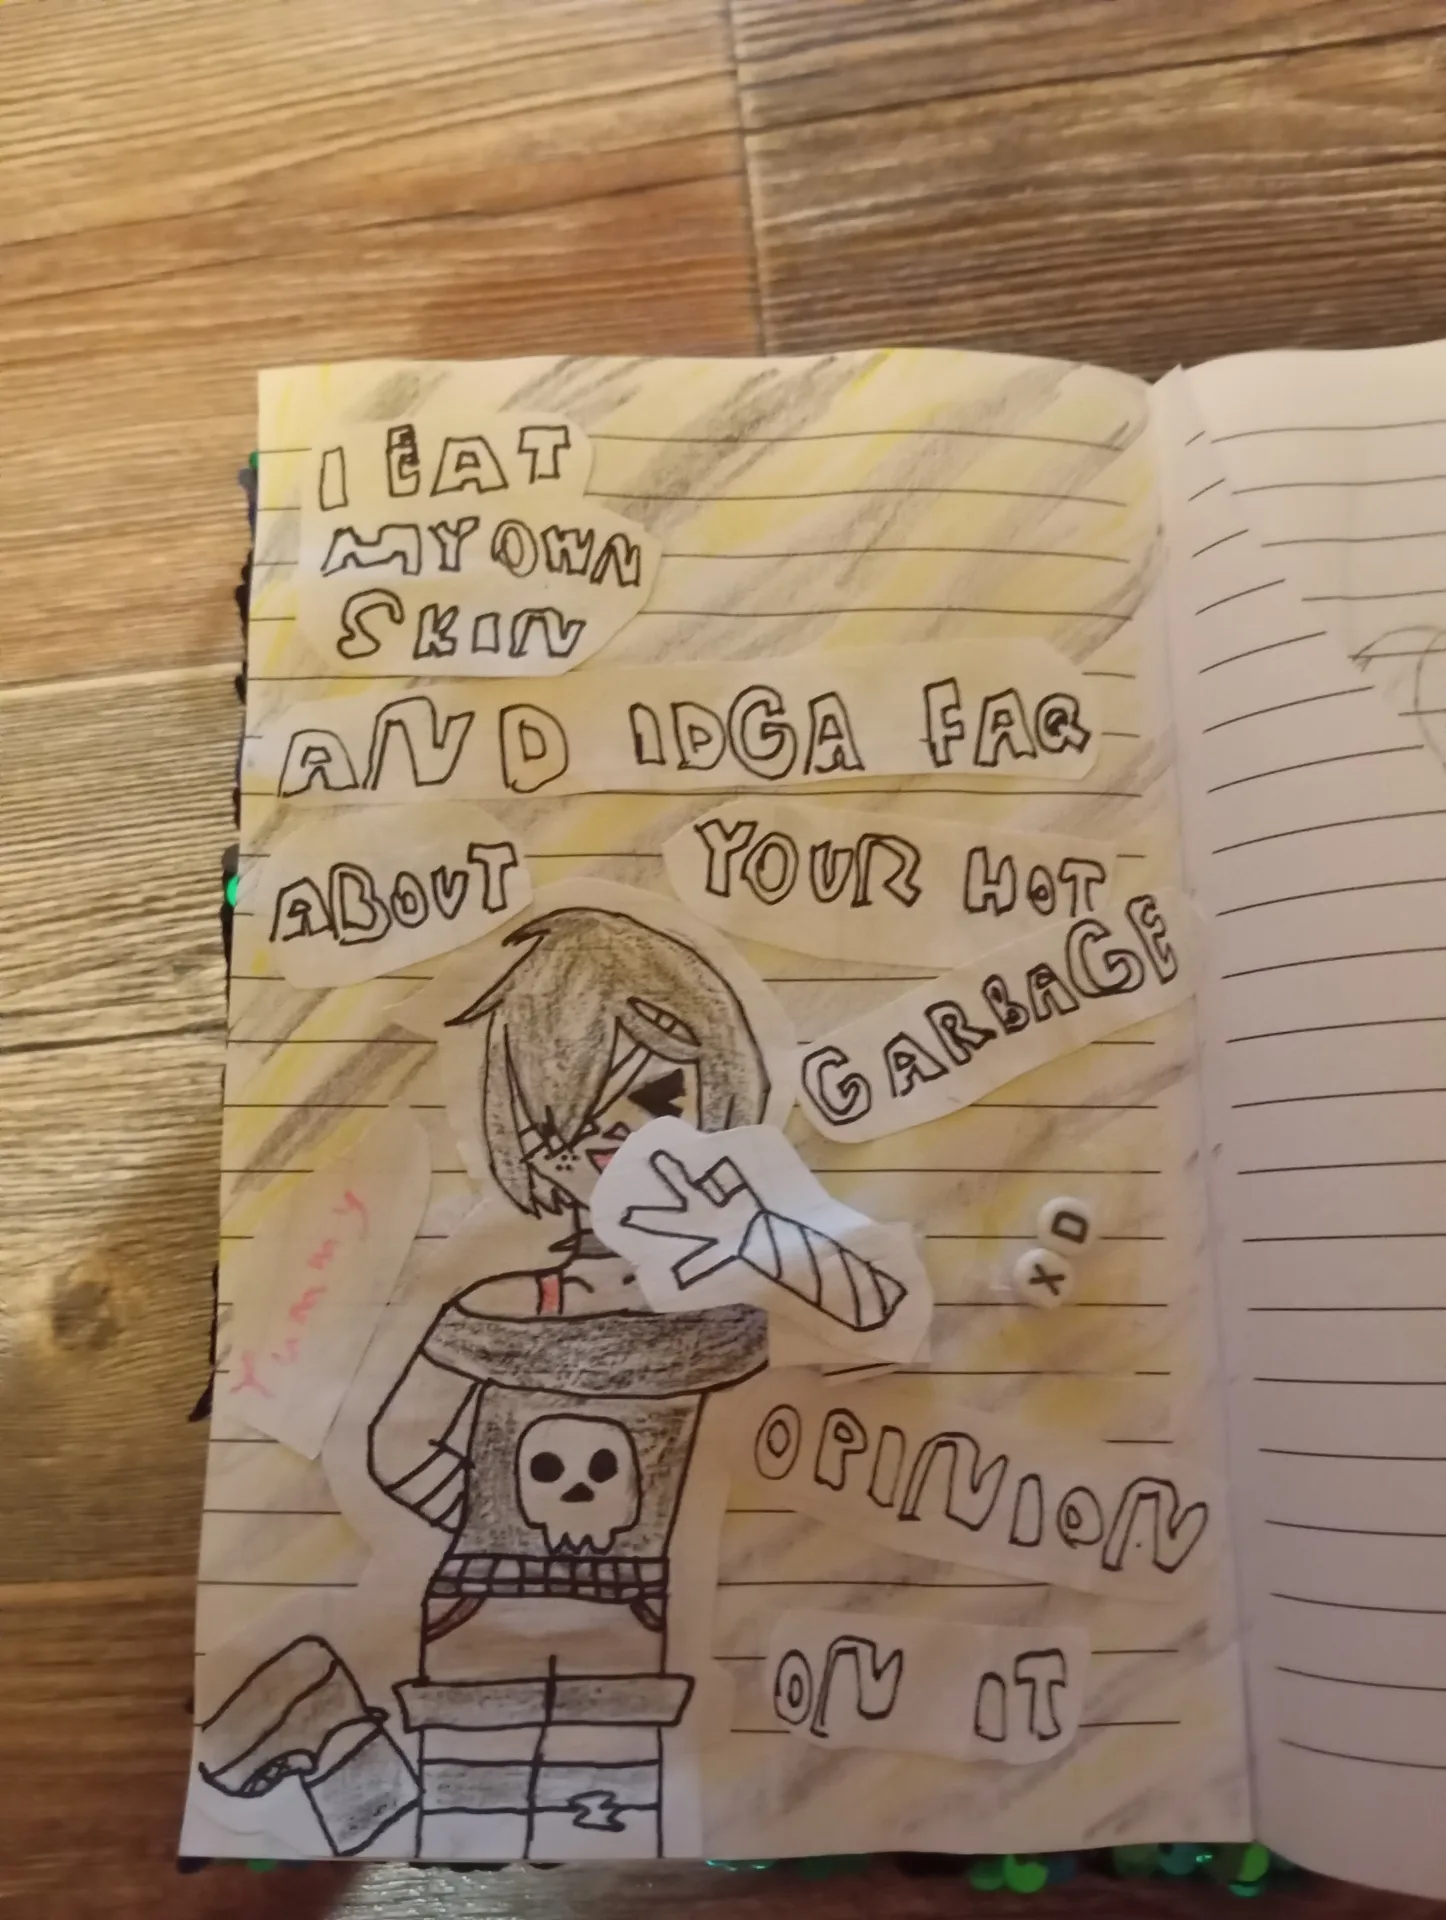 I EAT
MY OWN
SKIN
AND IDGA FAQ
ABOUT YOUR HOT
GARBAGE
Yummy
XD
OPINION
ON IT